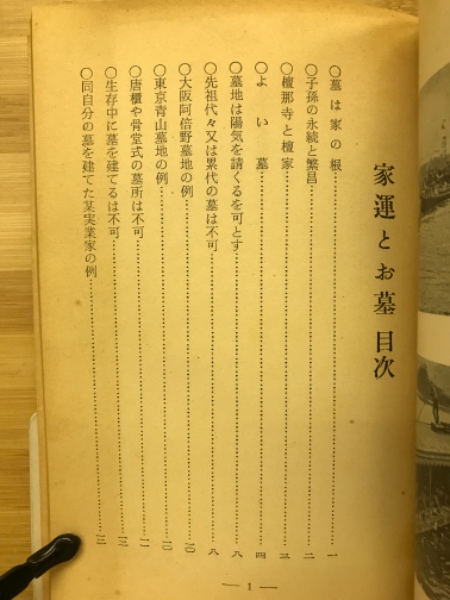 家運とお墓 目次
〇墓は家の根……一
〇子孫の永続と繁昌……二
〇檀那寺と檀家……三
〇よい墓……四
〇墓地は陽気を請くるを可とす……八
〇先祖代々又は累代の墓は不可……八
〇大阪阿倍野墓地の例……一〇
〇東京青山墓地の例……一〇
〇唐櫃や骨堂式の墓所は不可……一一
〇生存中に墓を建てるは不可……一二
〇同自分の墓を建てた某実業家の例……一三
— 1 —